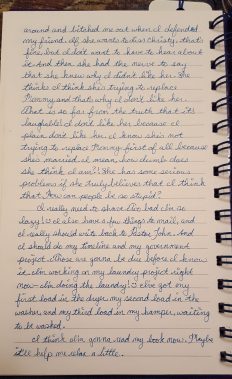 around and bitched me out when I defended
my friend. If she wants to diss Christy, that's
fine, but I don't want to have to hear about
it. And then she had the nerve to say
that she knew why I didn't like her. She
thinks I think she's trying to replace
Penny and that's why I don't like her.
That is so far from the truth that it's
laughable! I don't like her because I
plain don't like her. I know she's not
trying to replace Penny, first of all because
she's married. I mean, how dumb does
she think I am? She has some serious
problems if she truly believes that I think
that. How can people be so stupid?
I really need to phone Erin but I'm so
lazy! I also have a few things to mail, and
I really should write back to Pastor John. And
I should do my timeline and my government
project. Those are gonna be due before I know
it. I'm working on my laundry project right
now-I'm doing the laundry! I've got my
first load in the dryer, my second load in the
washer and my third load in my hamper, waiting
to be washed.
I think I'm gonna read my book now. Maybe
it'll help me relax a little.